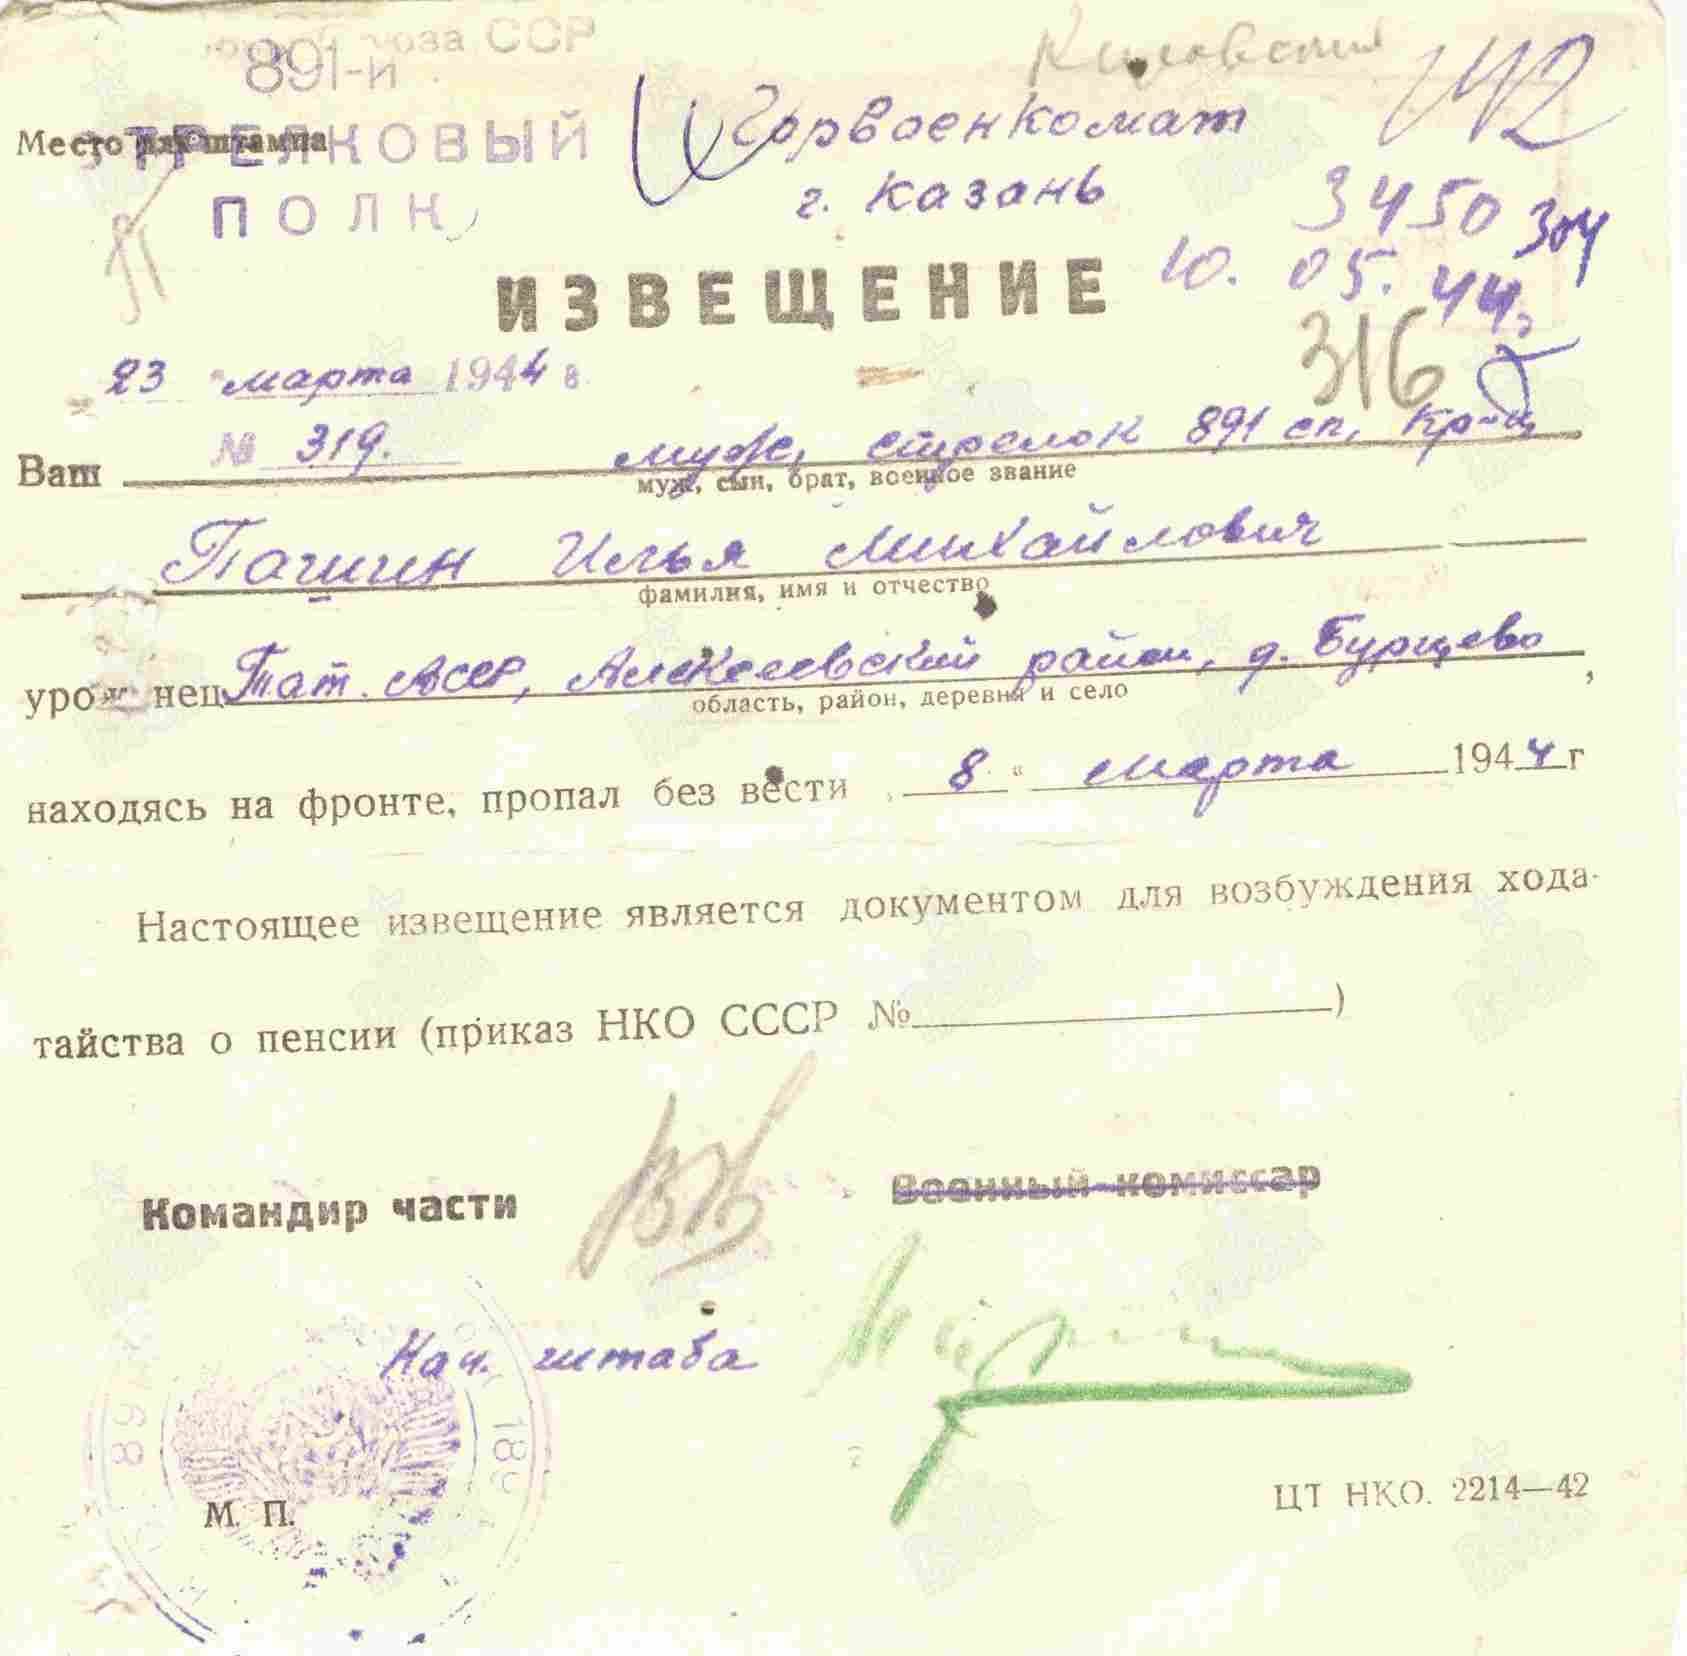 ССР
891-й
Кировский
Место для штампа
СТРЕЛКОВЫЙ
ПОЛК
Горвоенкомат
г. Казань
3450
304
10. 05. 44г.
ИЗВЕЩЕНИЕ
316
23 марта 1944 г.
№ 319.
Ваш муж, стрелок 891 сп, кр-ц
муж, сын, брат, военное звание
Пашин Илья Михайлович
фамилия, имя и отчество
урож нец Тат. АССР, Алексеевский район, д. Бурцево,
область, район, деревня и село
находясь на фронте, пропал без вести „ 8 “ марта 1944 г
Настоящее извещение является документом для возбуждения хода-
тайства о пенсии (приказ НКО СССР № )
Командир части
Военный комиссар
Нач. штаба
М. П.
ЦТ НКО. 2214—42